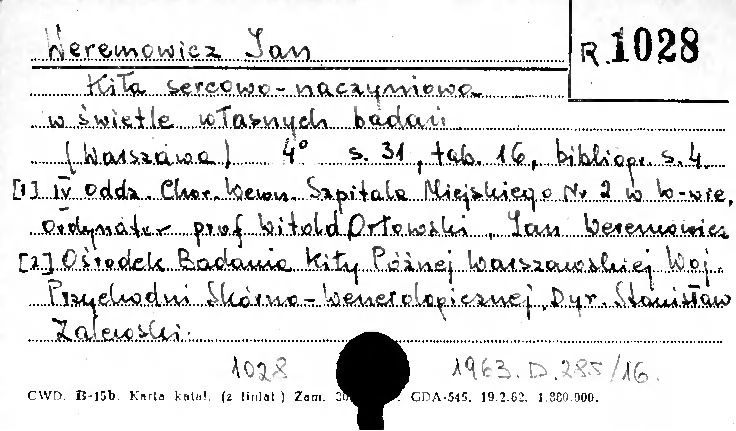 Weremowicz Jan
R. 1028
Kiła sercowo-naczyniowa
w świetle własnych badań
(Warszawa) 4° s. 31, tab. 16, bibliogr. s. 4.
[1] IV Oddz. Chor. Wewn. Szpitala Miejskiego Nr 2 w W-wie,
Ordynator prof Witold Orłowski, Jan Weremowicz
[2] Ośrodek Badania Kiły Późnej Warszawskiej Woj.
Przychodni Skórno-Wenerologicznej. Dyr. Stanisław
Zalewski.
1028 1963.D.285/16.
CWD. B-15b. Karta katal. (z liniat.) Zam. GDA-545. 19.2.62. 1.880.000.